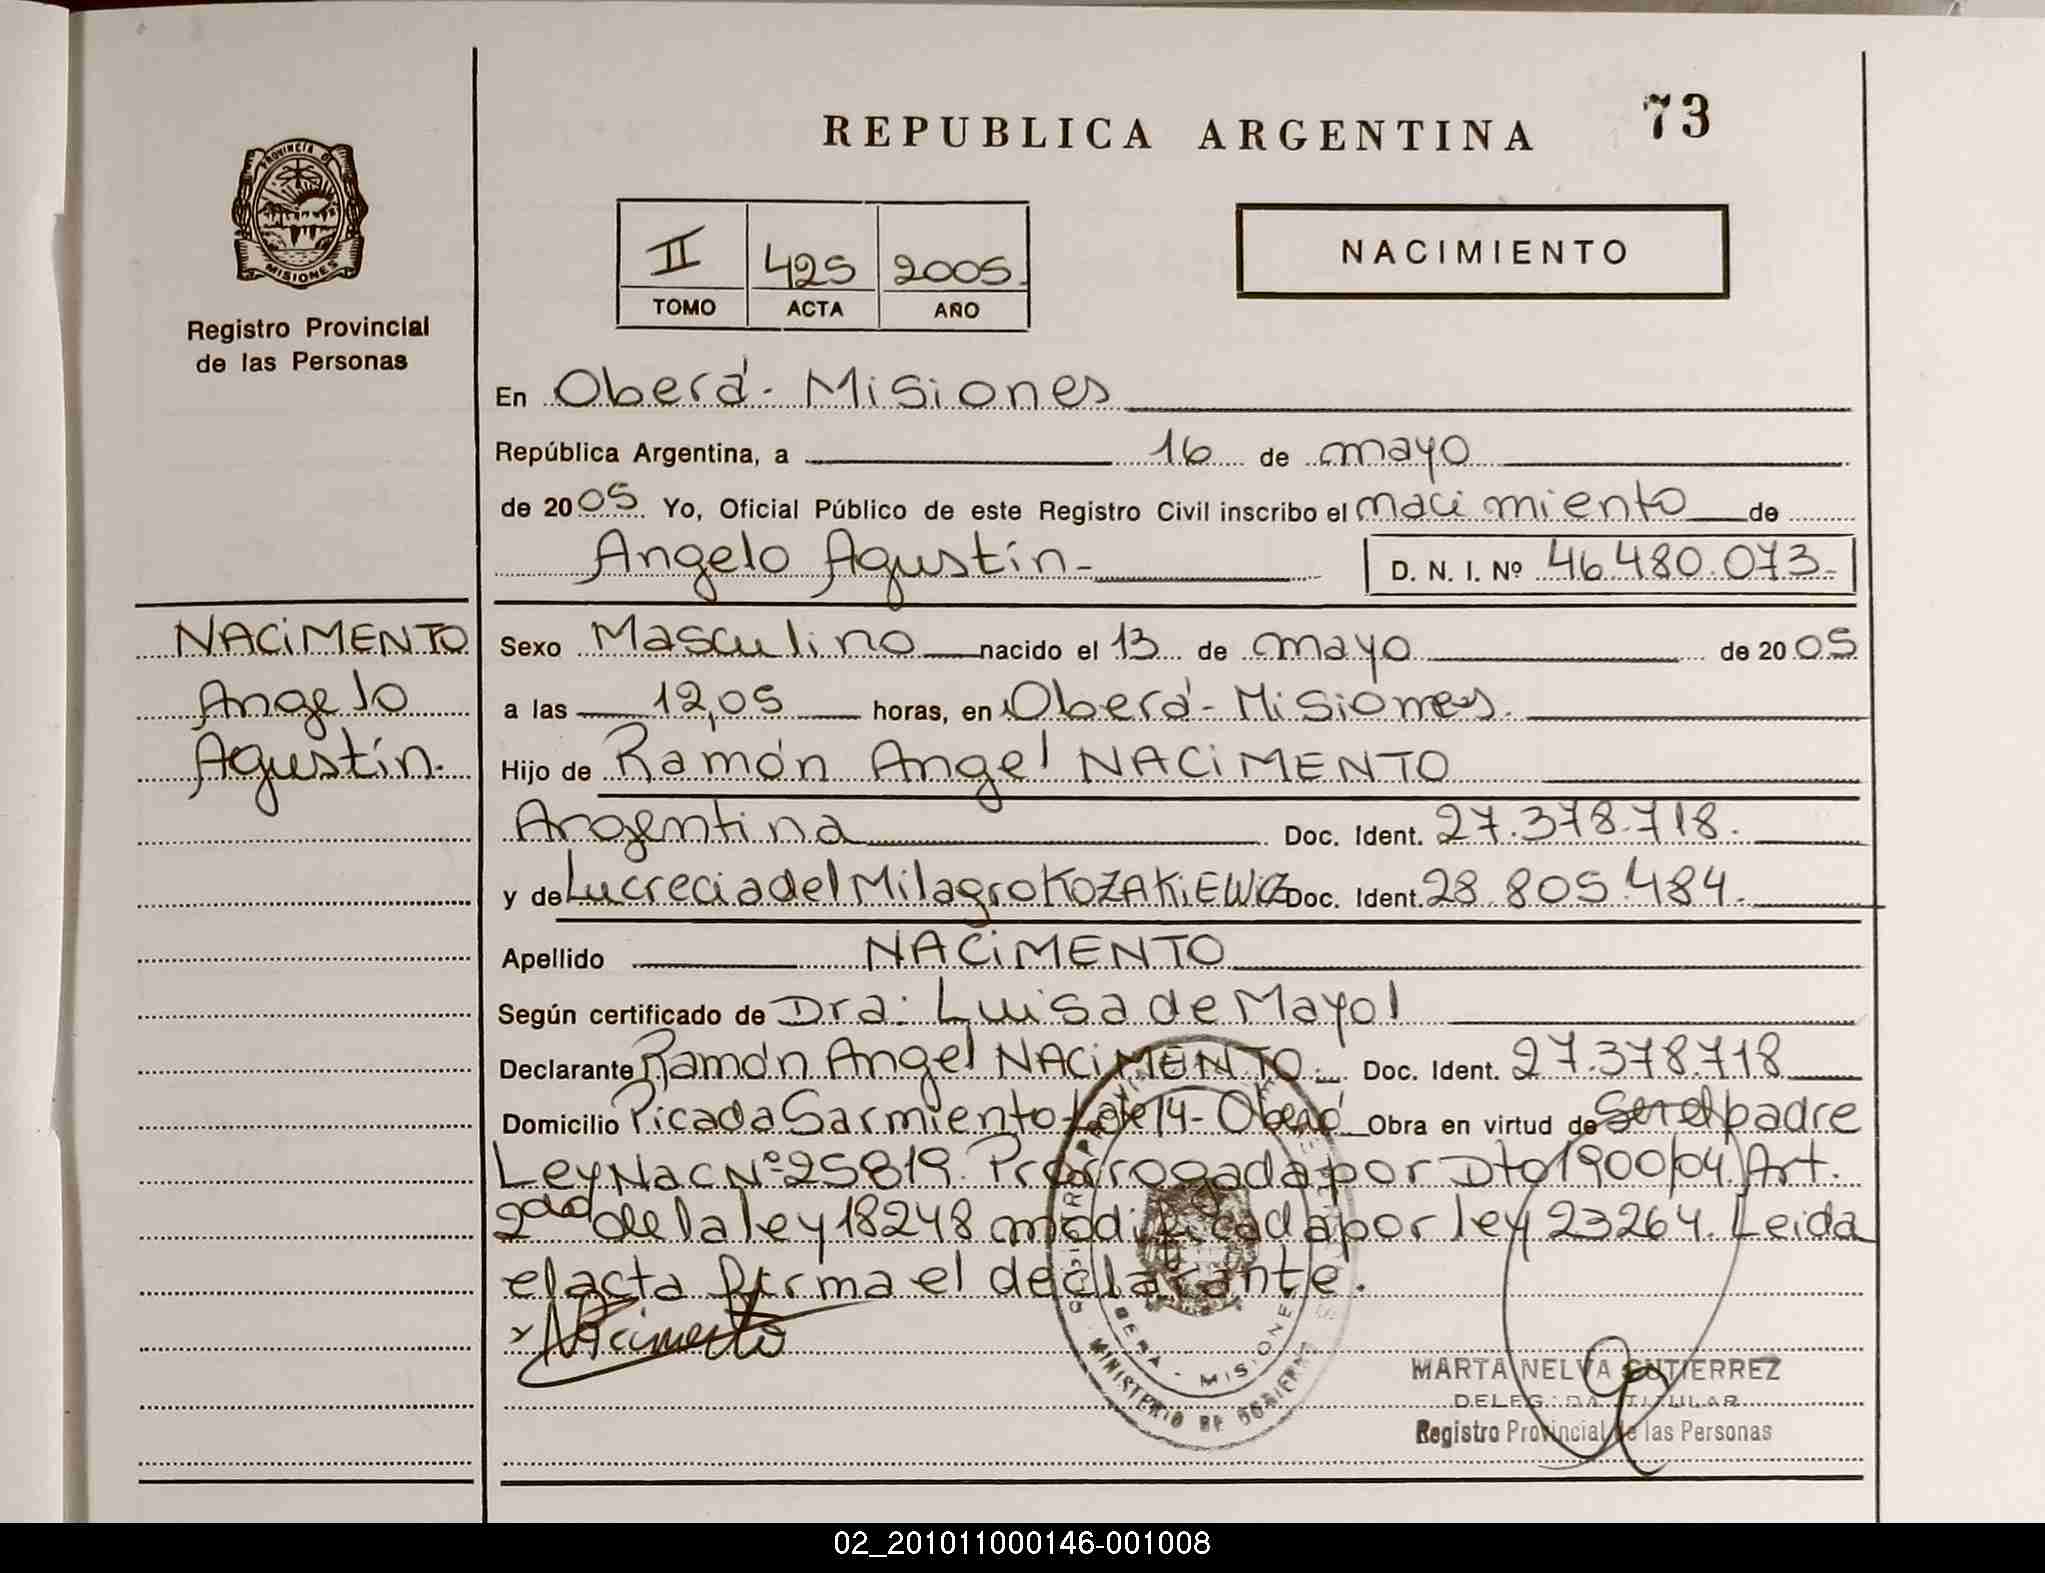 REPUBLICA ARGENTINA 73
PROVINCIA DE
MISIONES
Registro Provincial
de las Personas
II 425 2005
TOMO ACTA AÑO
NACIMIENTO
En Oberá - Misiones
República Argentina, a 16 de mayo
de 2005 Yo, Oficial Público de este Registro Civil inscribo el nacimiento de
Angelo Agustín - D. N. I. Nº 46.480.073-
NACIMENTO
Angelo
Agustín.
Sexo Masculino nacido el 13 de mayo de 2005
a las 12,05 horas, en Oberá - Misiones.
Hijo de Ramón Angel NACIMENTO
Argentina Doc. Ident. 27.378.718.
y de Lucrecia del Milagro KOZAKIEWICZ Doc. Ident. 28.805.484.
Apellido NACIMENTO
Según certificado de Dra. Luisa de Mayol
Declarante Ramón Angel NACIMENTO. Doc. Ident. 27.378.718
Domicilio Picada Sarmiento Lote 14 - Oberá Obra en virtud de Ser el padre
Ley Nac Nº 25819. Prorrogada por Dto 1900/04. Art.
2do de la ley 18248 modificada por ley 23264. Leida
el acta firma el declarante.
x Nacimento
OBERA - MISIONES
MINISTERIO DE GOBIERNO
MARTA NELVA GUTIERREZ
DELEGADA TITULAR
Registro Provincial de las Personas
02_201011000146-001008